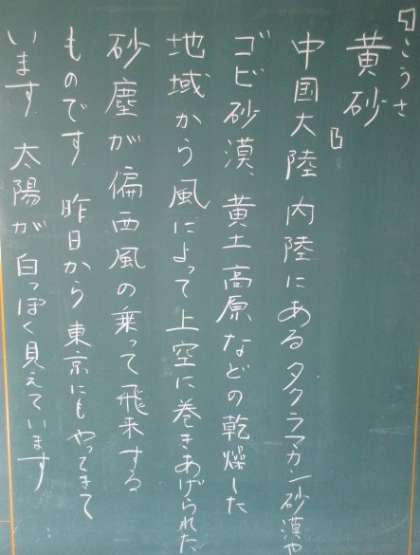 「こうさ
黄砂」
中国大陸 内陸にあるタクラマカン砂漠や
ゴビ砂漠、黄土高原などの乾燥した
地域から風によって上空に巻きあげられた
砂塵が偏西風の乗って飛来する
ものです。昨日から東京にもやってきて
います。太陽が白っぽく見えています